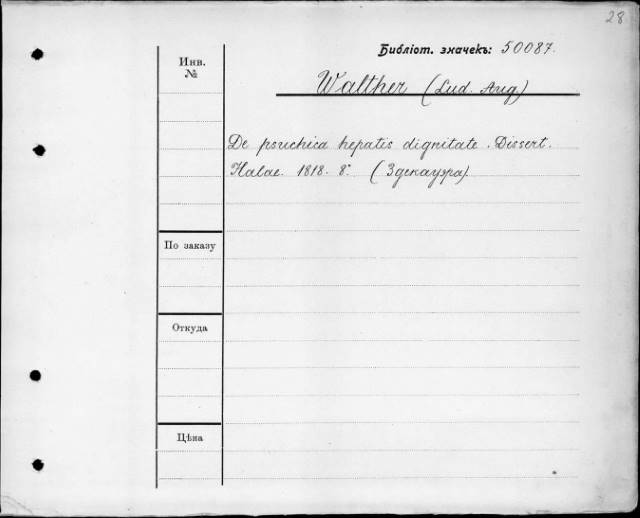 28
Библіот. значекъ: 50087.
Инв.
№
Walther (Lud. Aug)
De psuchica hepatis dignitate. Dissert.
Halae. 1818. 8° (Здекауэра)
По заказу
Откуда
Цѣна